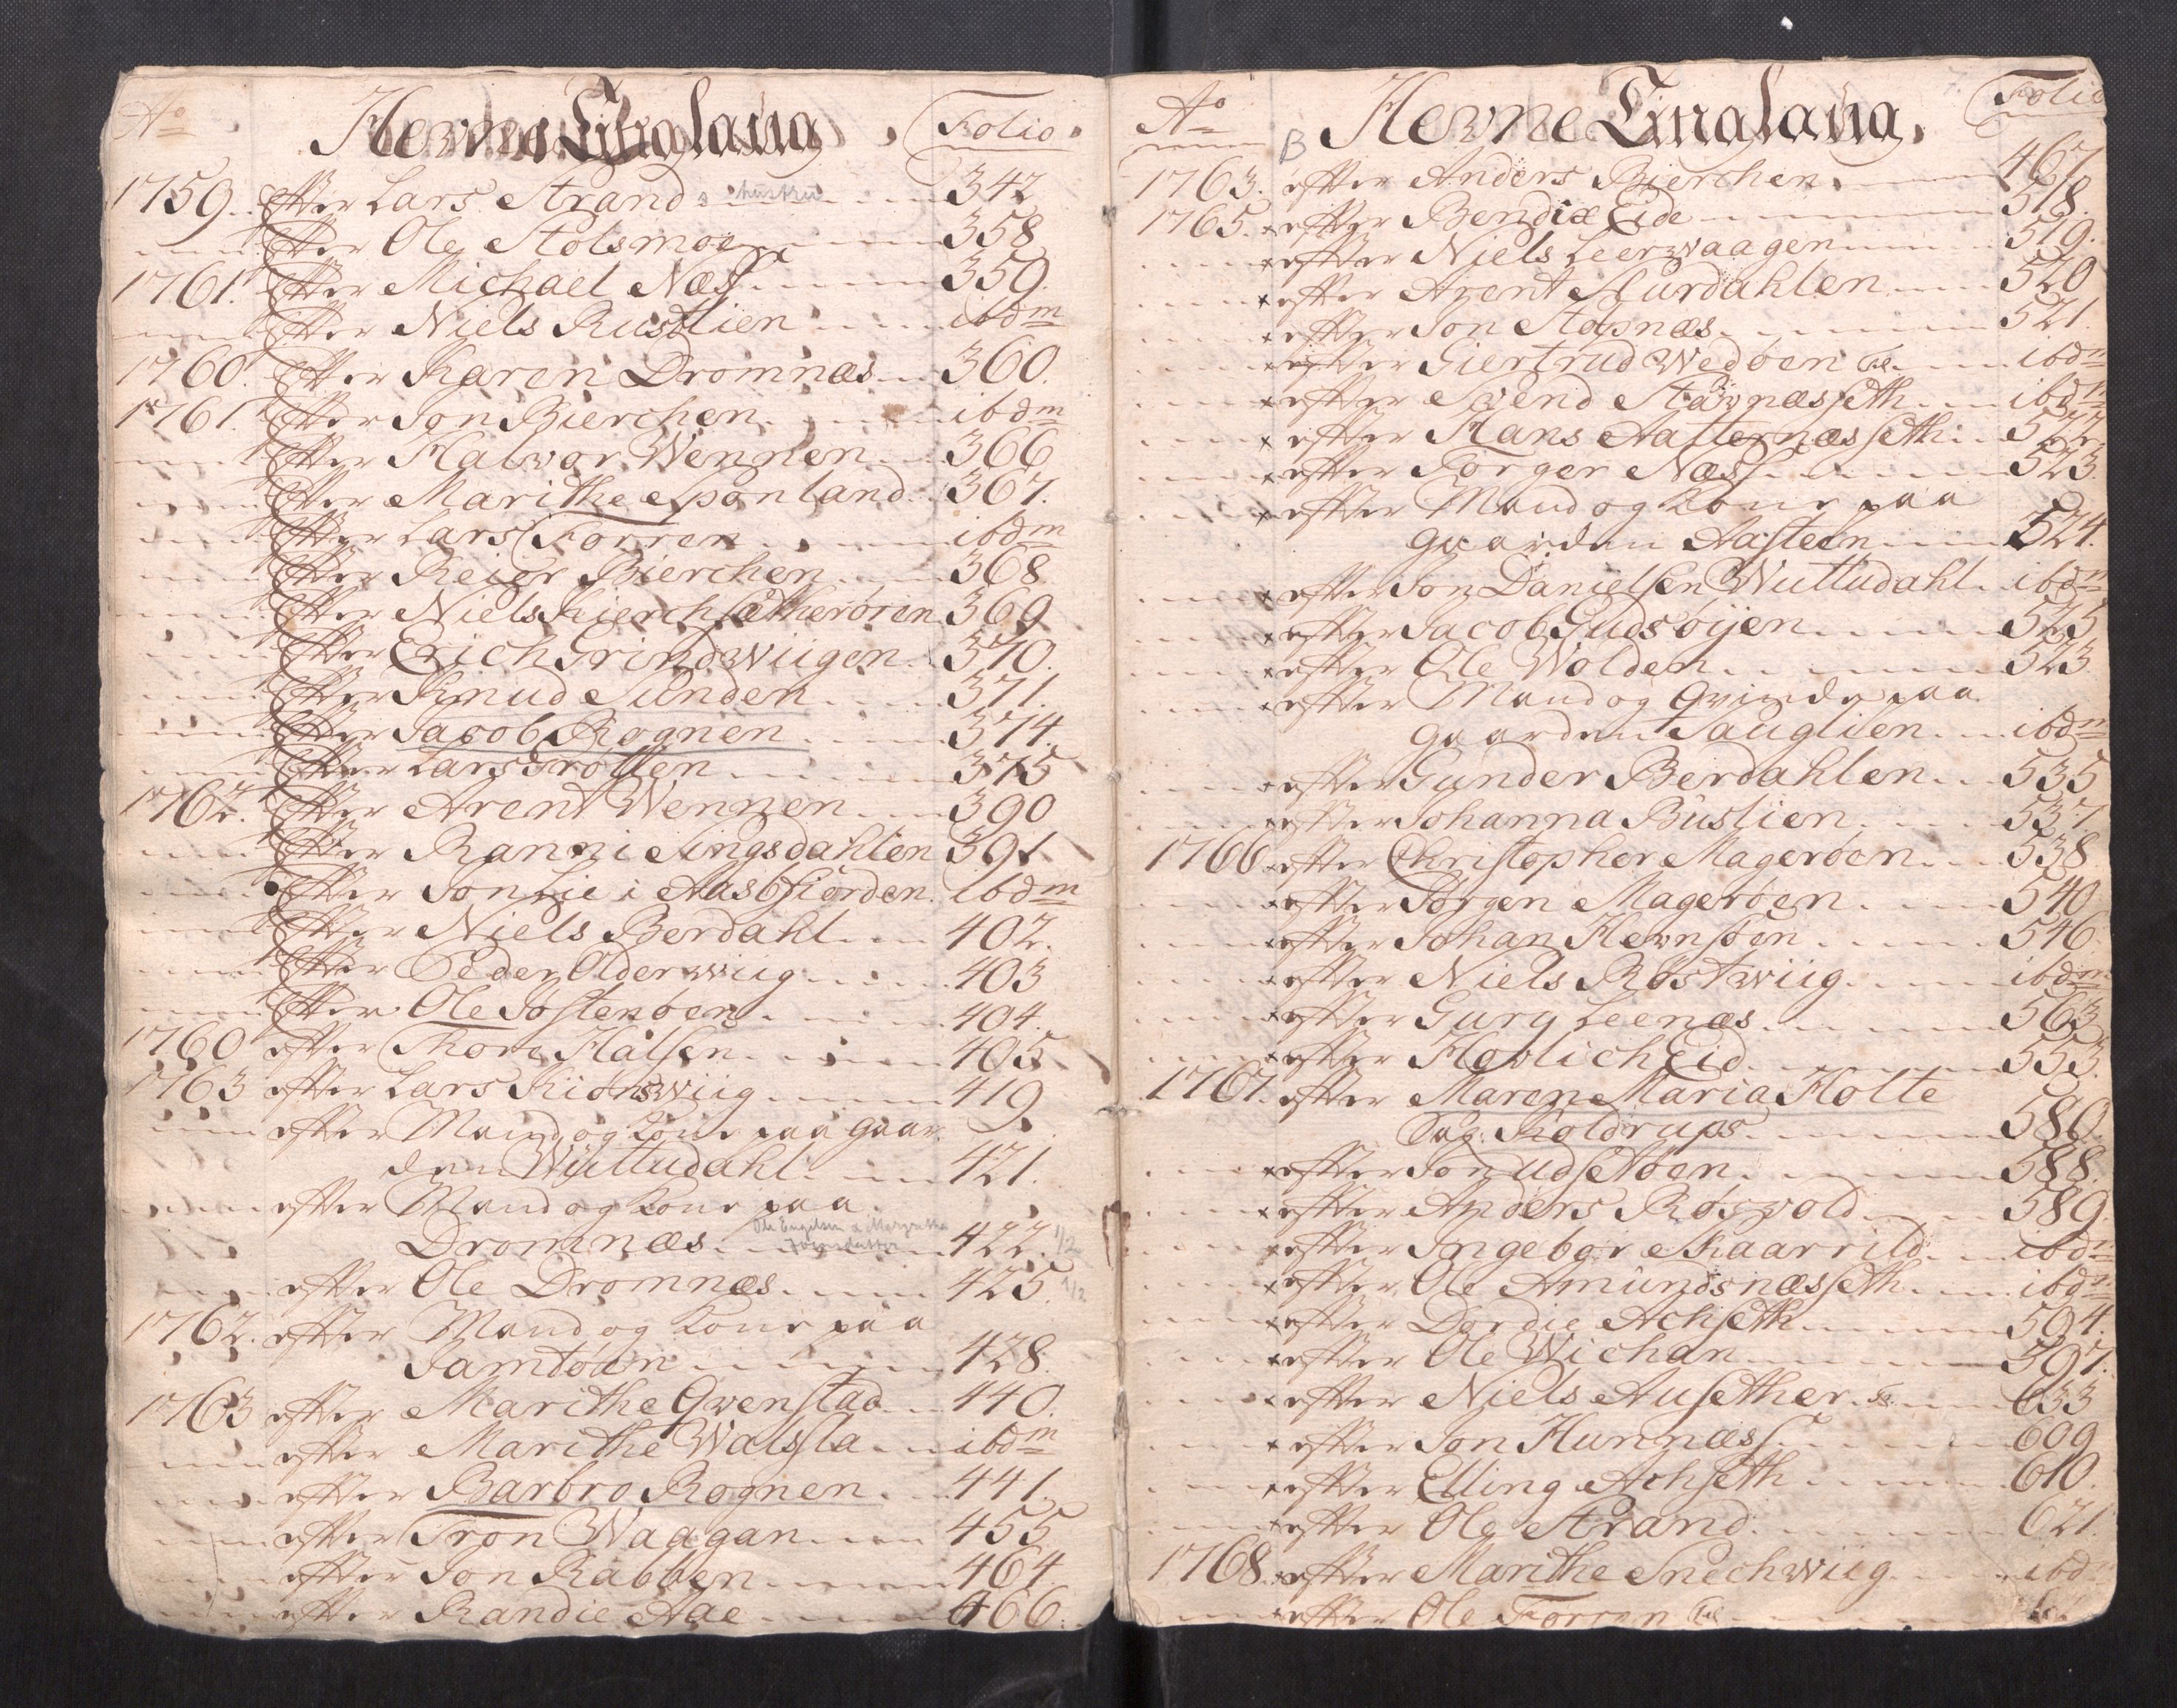 Ao Hevne Tinglaug. Folio.
1759. Efter Lars Strand s hustru 342
Efter Ole Stolsmoe 358
1761. Efter Michael Næss 359.
Efter Niels Rustlien ibdm
1760. Efter Karen Dromnæs 360.
1761. Efter Jon Bierchen ibdm
Efter Halvor Wennen 366
Efter Marithe Sponland 367.
Efter Lars Forren ibdm
Efter Reier Bierchen 368
Efter Niels Kierchsætherøren 369
Efter Erich Grindwiigen 370.
Efter Knud Sunden 371.
Efter Jacob Rognen 374.
Efter Lars Trøllen 375
1762. Efter Arent Wennen 390
Efter Ranni Singsdahlen 391.
Efter Jon Lie i Aasbfiorden. ibdm
Efter Niels Berdahl 402.
Efter Peder Olderwiig 403
Efter Ole Jøstenøen 404.
1760 efter Thore Halsen 405.
1763 efter Lars Kiorswiig 419
efter Mand og Kone paa Gaar
den Wuttudahl 421.
efter Mand og Kone paa
Dromnæs Ole Engelsen & Margrethe 422. 1/2
efter Ole Dromnæs 425. 1/2
1762. efter Mand og Kone paa
Jamtøen 428.
1763 efter Marithe Qvenstad 440.
efter Marithe Walsla ibdm
efter Barbro Rognen 441.
efter Tron Waagan 455
efter Jon Rabben 464
efter Randie Aae 466.
Ao B Hevne Tinglaug. Folio
1763. efter Anders Bierchen 467
1765. efter Bendix Eide 518.
efter Niels Leerwaagen 519.
efter Arent Slurdahlen 520
efter Jon Stolsnæs 521.
efter Giertrud Wedøen ibdm
efter Svend Stavnæsseth ibdm
efter Hans Aaternæsseth 522
efter Torger Næss 523.
efter Mand og Kone paa
Gaarden Aasteen 524.
efter Jon Danielsen Wuttudahl ibdm
efter Jacob Gudsøyen 525
efter Ole Wolden 523
efter Mand og Qvinde paa
Gaarden Sauglien ibdm
efter Gunder Berdahlen 535
efter Johanna Buslien 537.
1766 efter Christopher Magerøen 538
efter Jørgen Magerøen 540
efter Johan Hevnsøen 546.
efter Niels Røstwiig ibdm
efter Gury Leenæs 563
efter Hovlich Eid 553.
1767. efter Maren Maria Holte
Sag. Koldrups 580.
efter Jon Udsetøen 588.
efter Anders Røsvold 589.
efter Ingebor Skaarrild ibdm
efter Ole Amundsnæsseth ibdm
efter Dordie Achseth 594.
efter Ole Wichan 597.
efter Niels Ausether 633
efter Jon Hunnæss 609
efter Elling Achseth 610.
efter Ole Strand 621.
1768. efter Marithe Snechwiig ibd
efter Ole Forren